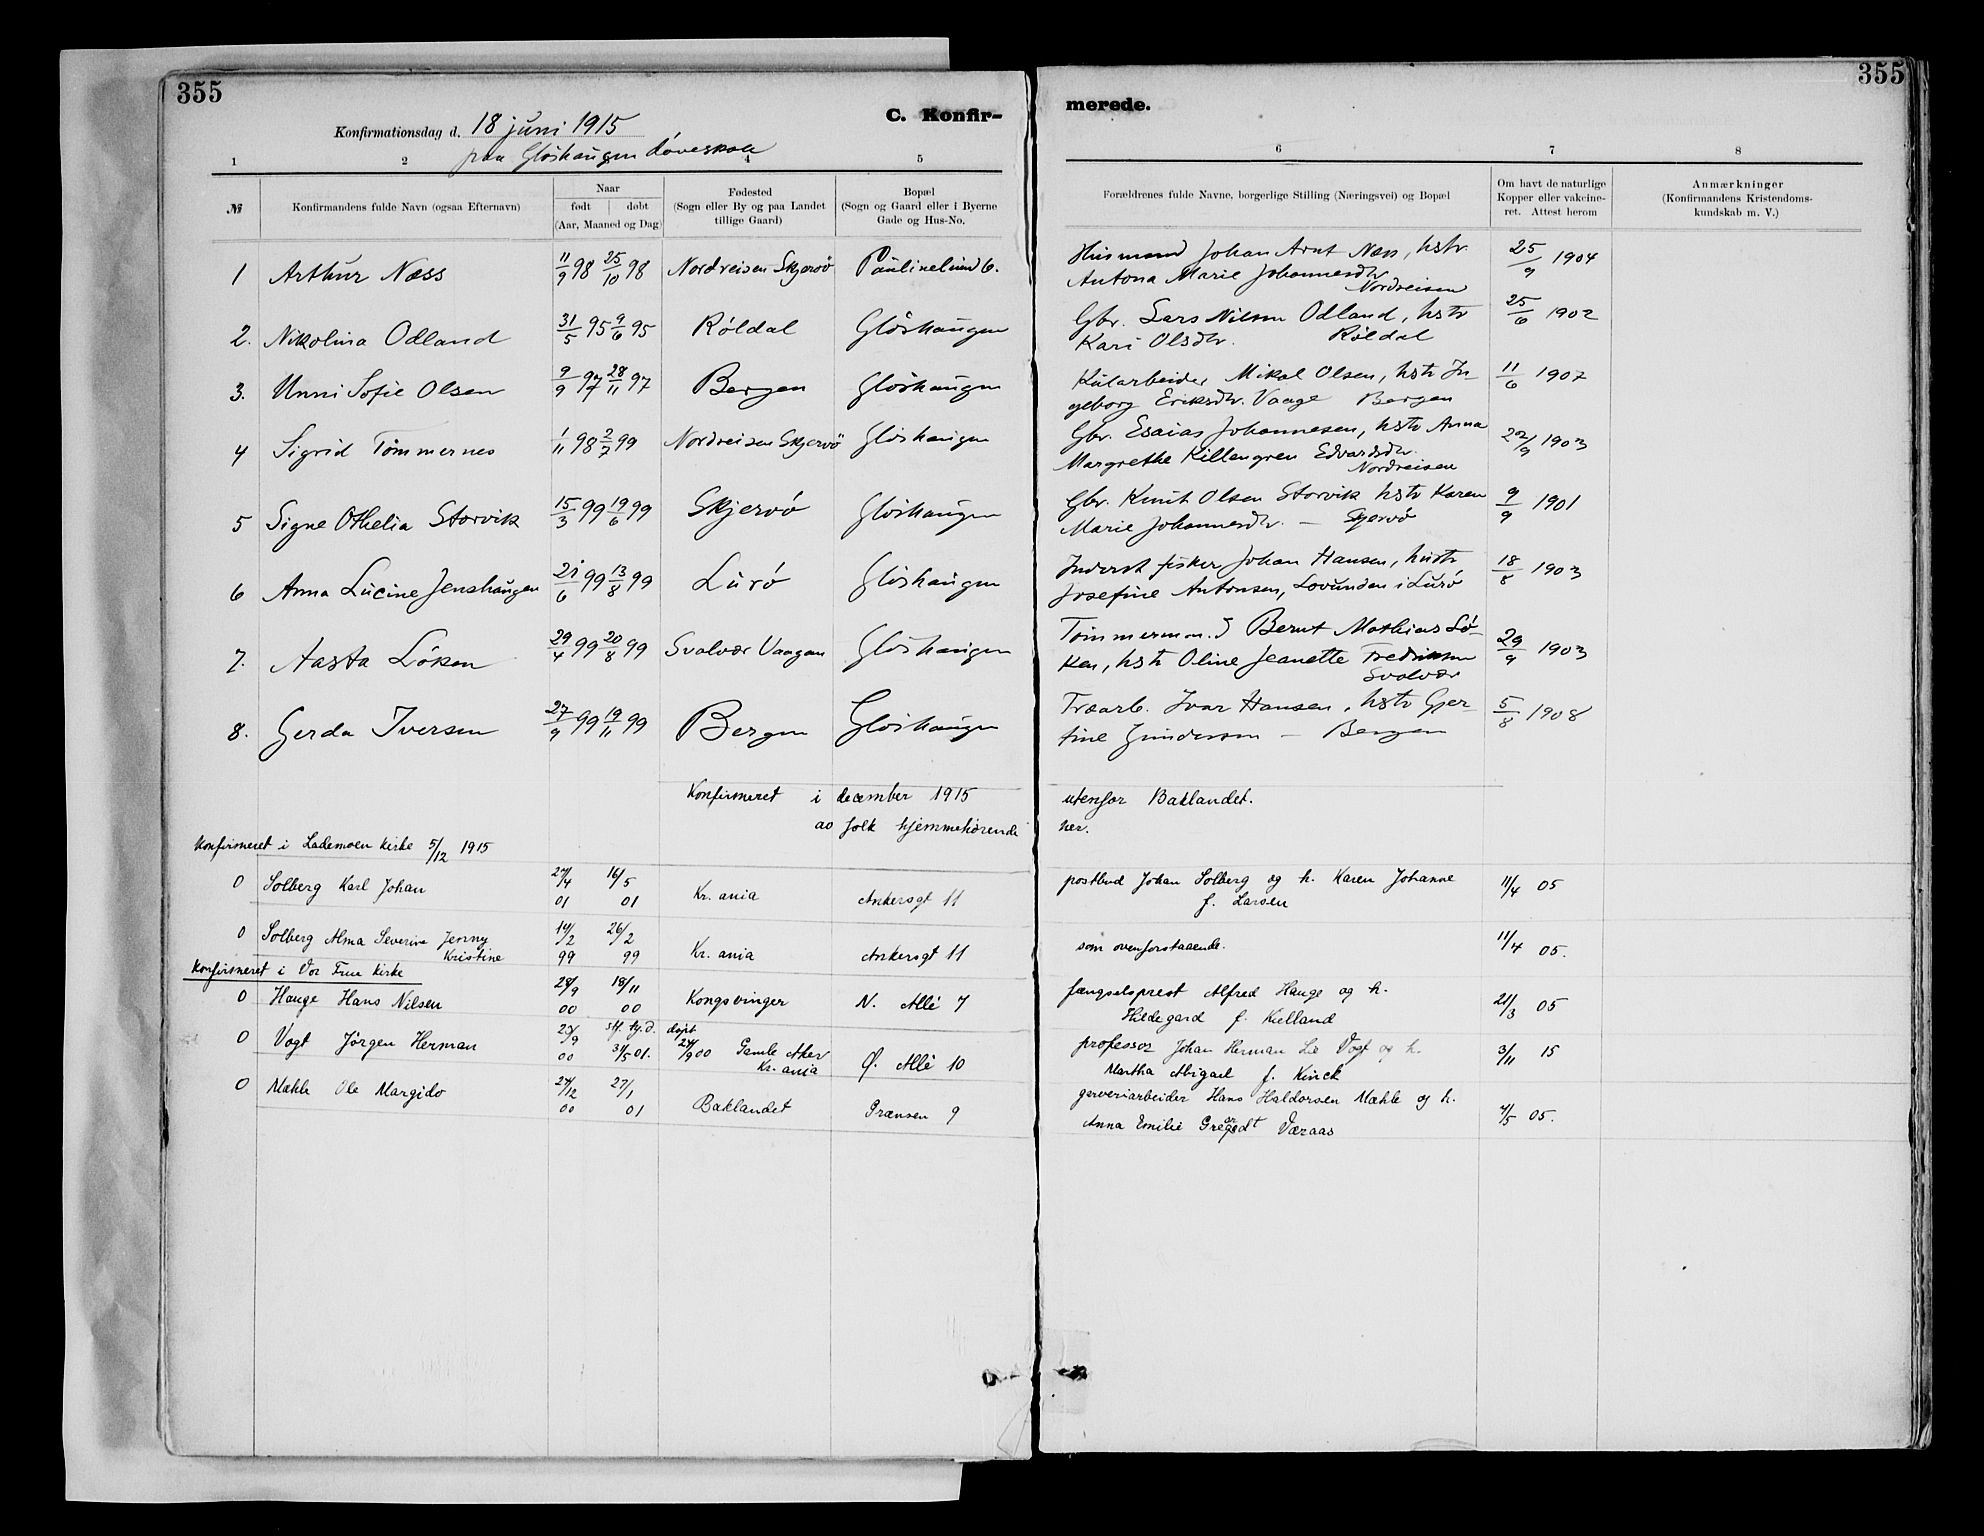 355
355
C. Konfir-
merede.
Konfirmationsdag d. 18 juni 1915
paa Glöshaugen døveskole
1 2 4 5 6 7 8
№ Konfirmandens fulde Navn (ogsaa Efternavn) Naar født døbt (Aar, Maaned og Dag) Fødested (Sogn eller By og paa Landet tillige Gaard) Bopæl (Sogn og Gaard eller i Byerne Gade og Hus-No. Forældrenes fulde Navne, borgerlige Stilling (Næringsvei) og Bopæl Om havt de naturlige Kopper eller vakcine-ret. Attest herom Anmærkninger (Konfirmandens Kristendoms-kundskab m. V.)
1 Arthur Næss 11/9 98 25/10 98 Nordreisen Skjervö Paulinelund 6. Husmand Johan Arnt Næss, hstr 25/9 1904
Antona Marie Johannesdtr
Nordreisen
2. Nikolina Odland 31/5 95 9/6 95 Röldal Glöshaugen Gbr. Lars Nilsen Odland, hstr 25/6 1902
Kari Olsdtr. Röldal
3. Unni Sofie Olsen 9/9 97 28/11 97 Bergen Glöshaugen Kularbeider Mikal Olsen, hstr In- 11/6 1907
geborg Eriksdtr. Vaage Bergen
4 Sigrid Tömmernes 1/11 98 2/7 99 Nordreisen Skjervö Glöshaugen Gbr. Esaias Johannesen, hstr Anna 22/9 1903
Margrethe Killengren Edvardsdtr.
Nordreisen
5 Signe Othelia Storvik 15/3 99 19/6 99 Skjervö Glöshaugen Gbr. Knut Olsen Storvik hstr Karen 9/9 1901
Marie Johannesdtr. — Skjervö
6 Anna Lucine Jenshaugen 21/6 99 13/8 99 Lurö Glöshaugen Inderst fisker Johan Hansen, hustr 18/8 1903
Josefine Antonsen, Lovunden i Lurö
7. Aasta Löken 29/4 99 20/8 99 Svolvær Vaagan Glöshaugen Tömmerm. Bernt Mathias Lö- 29/9 1903
ken, hstr Oline Jeanette Fredriksen
Svolvær
8. Gerda Iversen 27/9 99 19/11 99 Bergen Glöshaugen Træarb. Ivar Hansen, hstr Gjer- 5/8 1908
tine Gundersen — Bergen
Konfirmeret i december 1915 utenfor Baklandet.
av folk hjemmehörende her.
Konfirmeret i Lademoen kirke 5/12 1915
0 Solberg Karl Johan 27/4 01 16/5 01 Kr.ania Ankersgt 11 postbud Johan Solberg og h. Karen Johanne 11/4 05
f. Larsen
0 Solberg Alma Severine Jenny 14/2 99 26/2 99 Kr.ania Ankersgt 11 som ovenforstaaende. 11/4 05.
Kristine
Konfirmeret i Vor Frue kirke
0 Hauge Hans Nilsen 28/9 00 18/11 00 Kongsvinger N. Allé 7 fængselsprest Alfred Hauge og h. 21/3 05
Hildegard f. Kielland
0 Vogt Jörgen Herman 23/9 00 stf. hj.d. döpt 24/9 00 31/5 01. Gamle Aker Ø. Allé 10 professor Johan Herman Lie Vogt og h. 3/11 15
Kr.ania Martha Abigael f. Kinck
0 Mæhle Ole Margido 24/12 00 27/1 01 Baklandet Grænsen 9 garveriarbeider Hans Haldorsen Mæhle og h. 4/5 05.
Anna Emilie Væraas